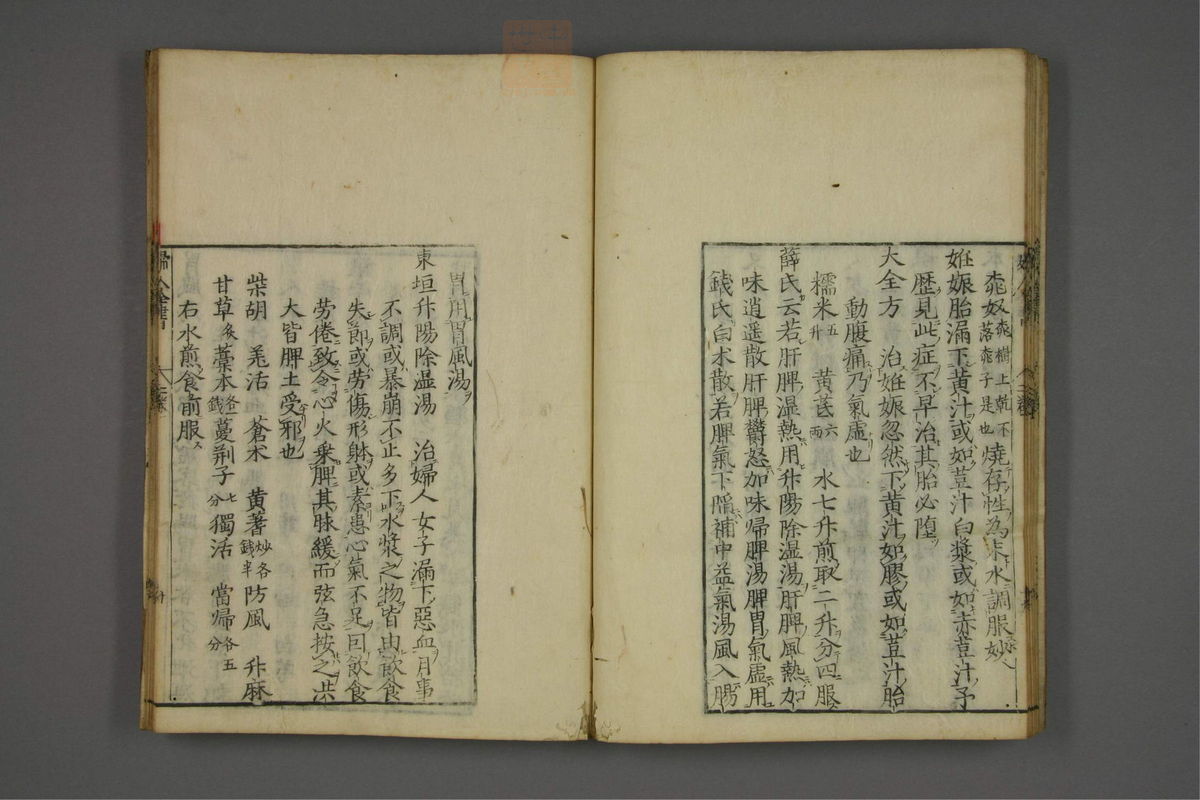 桒奴桒樹上乾不落桒子是也燒存性為末水調服妙
姙娠胎漏下黄汁或如荳汁白漿或如赤荳汁予
歷見此症不早治其胎必堕
大全方 治姙娠忽然下黄汁如膠或如荳汁胎
動腹痛乃氣虛也
糯米五升 黄芪六兩 水七升煎取二升分四服
薛氏云若肝脾濕熱用升陽除湿湯肝脾風熱加
味逍遥散肝脾鬱怒加味帰脾湯脾胃氣虛用
錢氏白朮散若脾氣下陥補中益氣湯風入腸
胃用胃風湯
東垣升陽除湿湯 治婦人女子漏下惡血月事
不調或暴崩不止多下水漿之物皆由飲食
失節或劳傷形躰或素患心氣不足因飲食
劳倦致令心火乗脾其脉緩而弦急按之洪
大皆脾土受邪也
柴胡 羌活 蒼朮 黄蓍炒各錢半 防風 升麻
甘草炙 藁本各一錢 蔓荆子七分 獨活 當帰各五分
右水煎食前服